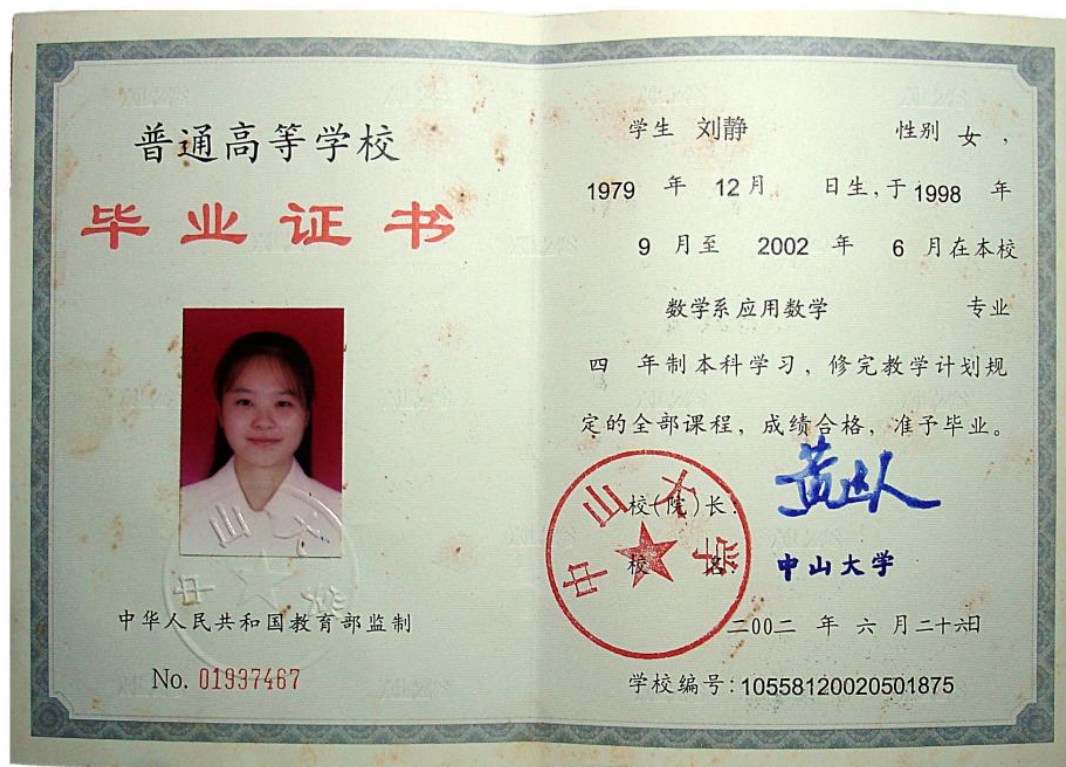 普通高等学校
毕业证书
中山大学
中华人民共和国教育部监制
No. 01937467
学生 刘静 性别 女，
1979 年 12 月 日生，于 1998 年
9 月至 2002 年 6 月在本校
数学系应用数学 专业
四 年制本科学习，修完教学计划规
定的全部课程，成绩合格，准予毕业。
校（院）长：黄达人
校 名：中山大学
中山大学
二00二 年 六 月二十六日
学校编号：10558120020501875